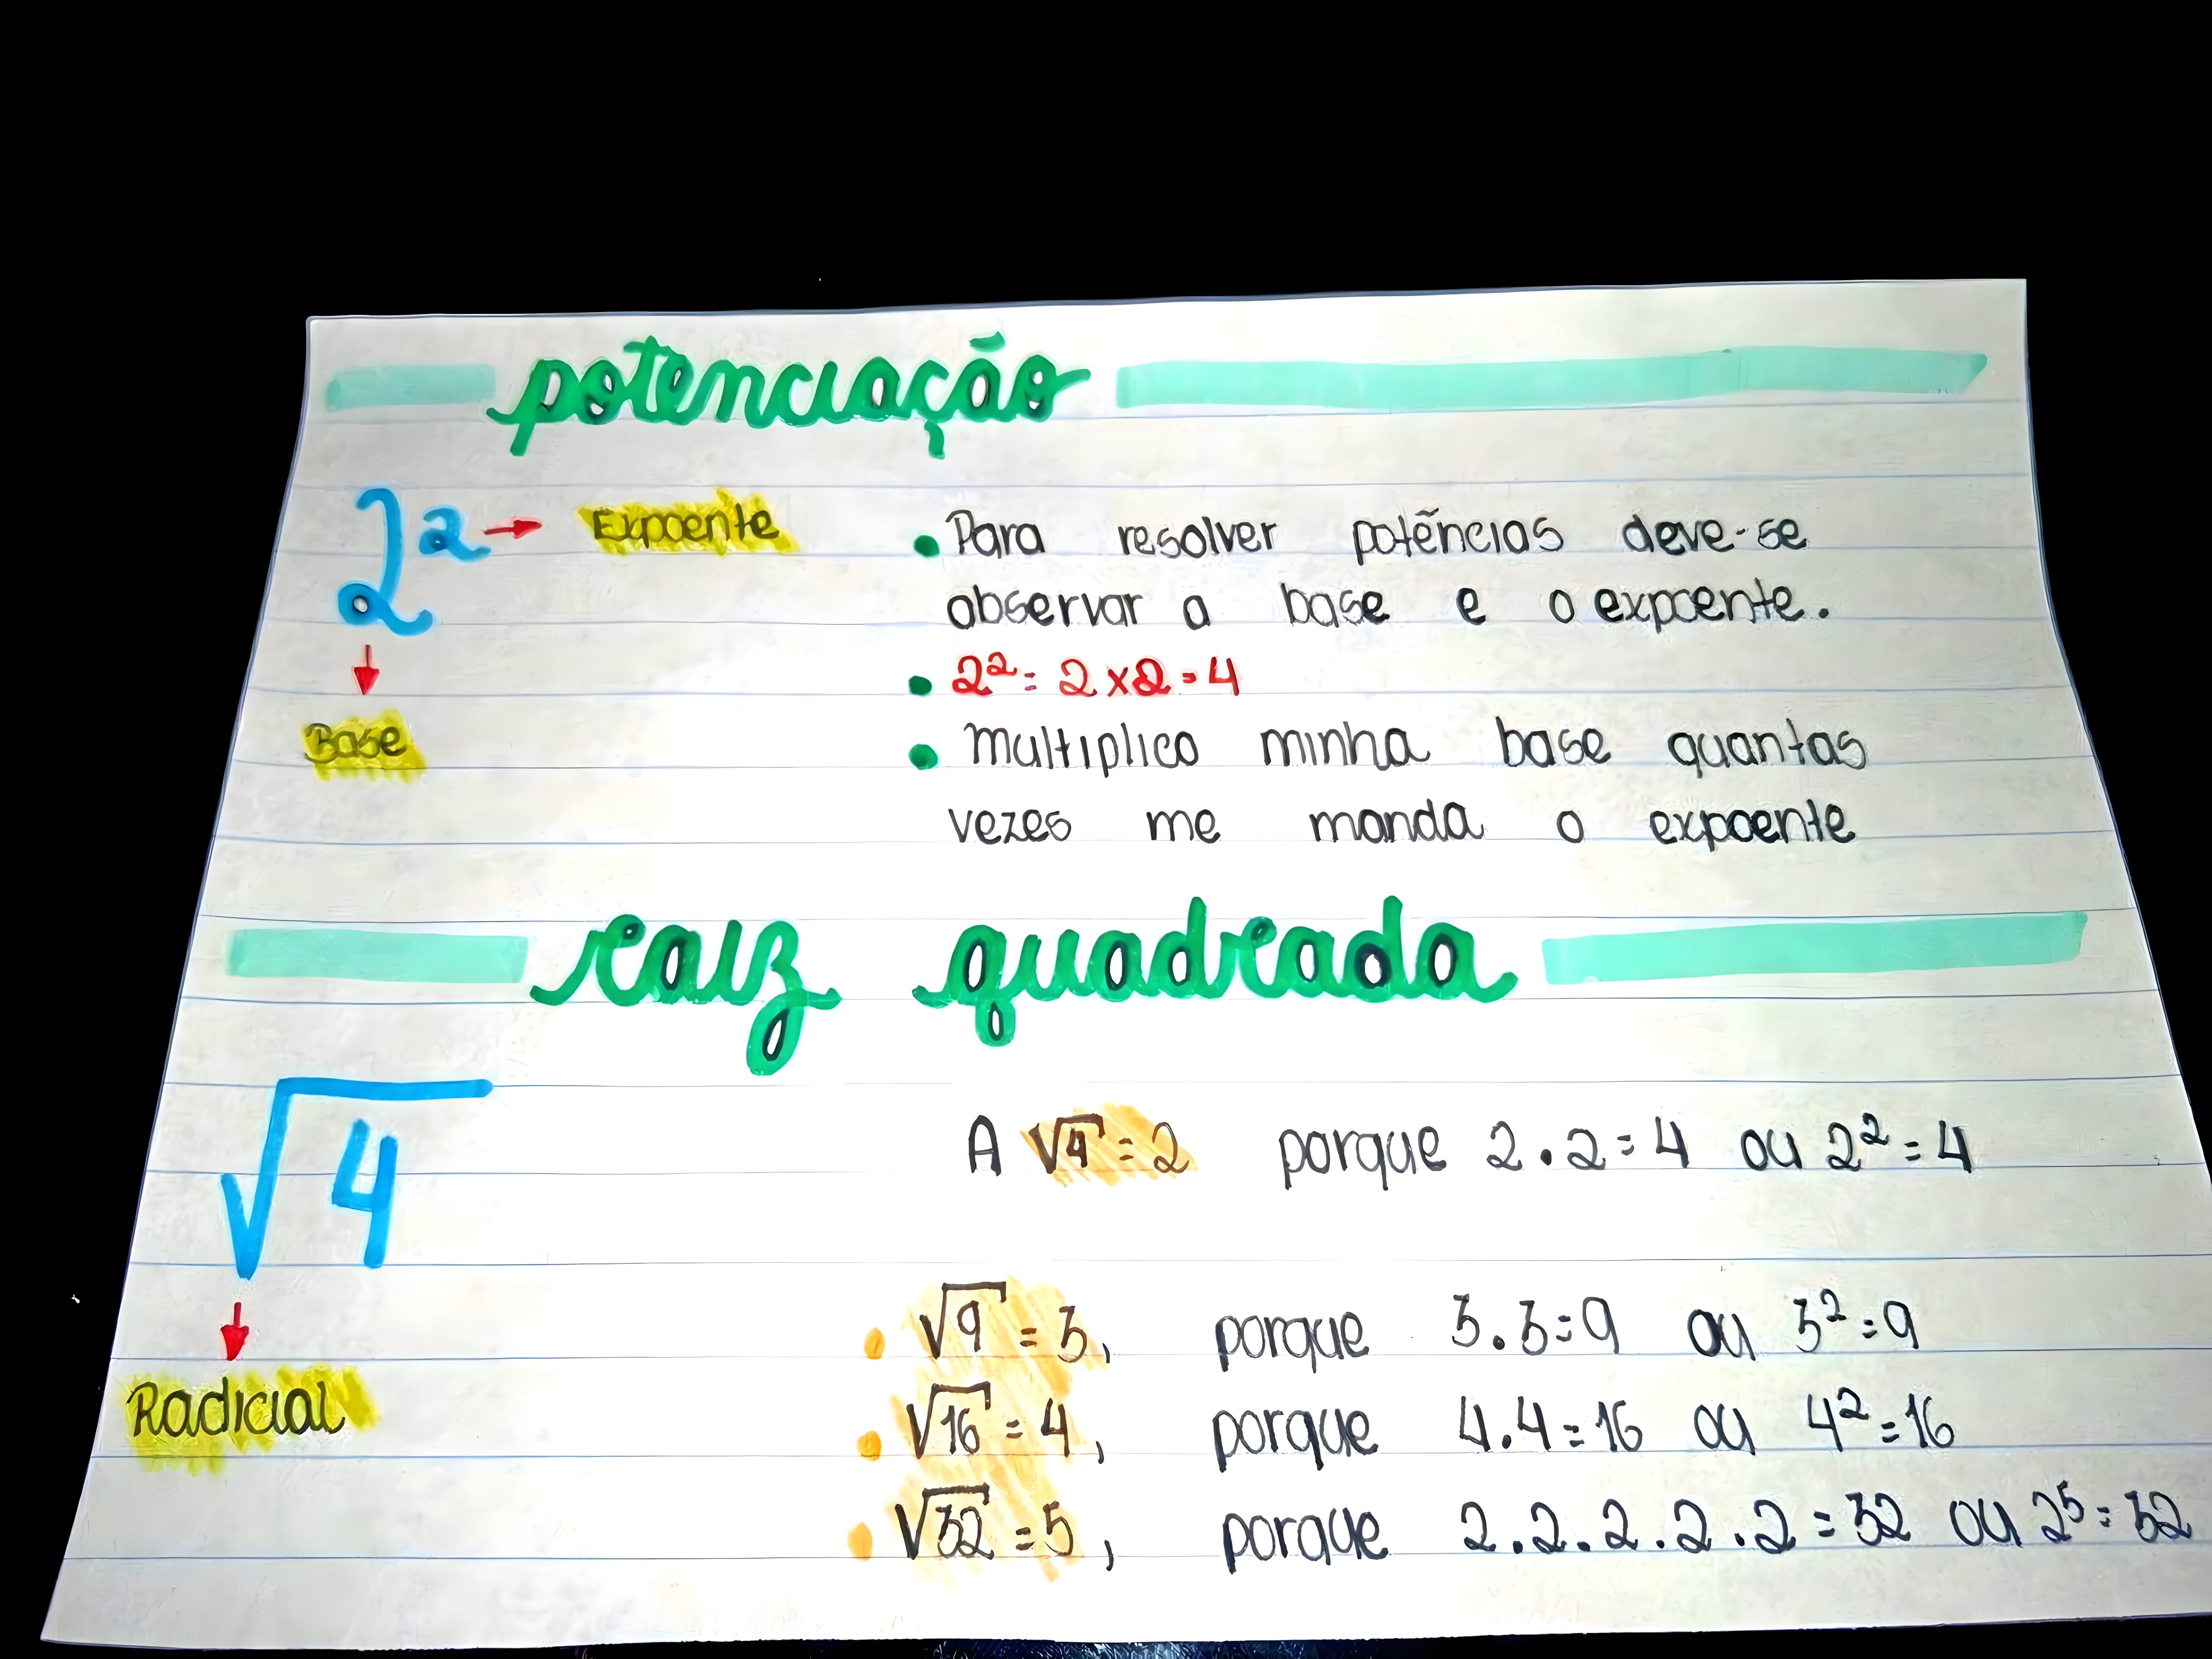 potenciação
2² → Expoente
Base
• Para resolver potências deve-se
observar a base e o expoente.
• 2² = 2 x 2 = 4
• Multiplico minha base quantas
vezes me manda o expoente
raiz quadrada
√4
Radicial
A √4 = 2 porque 2 . 2 = 4 ou 2² = 4
• √9 = 3, porque 3 . 3 = 9 ou 3² = 9
• √16 = 4, porque 4 . 4 = 16 ou 4² = 16
• √32 = 5, porque 2 . 2 . 2 . 2 . 2 = 32 ou 2⁵ = 32